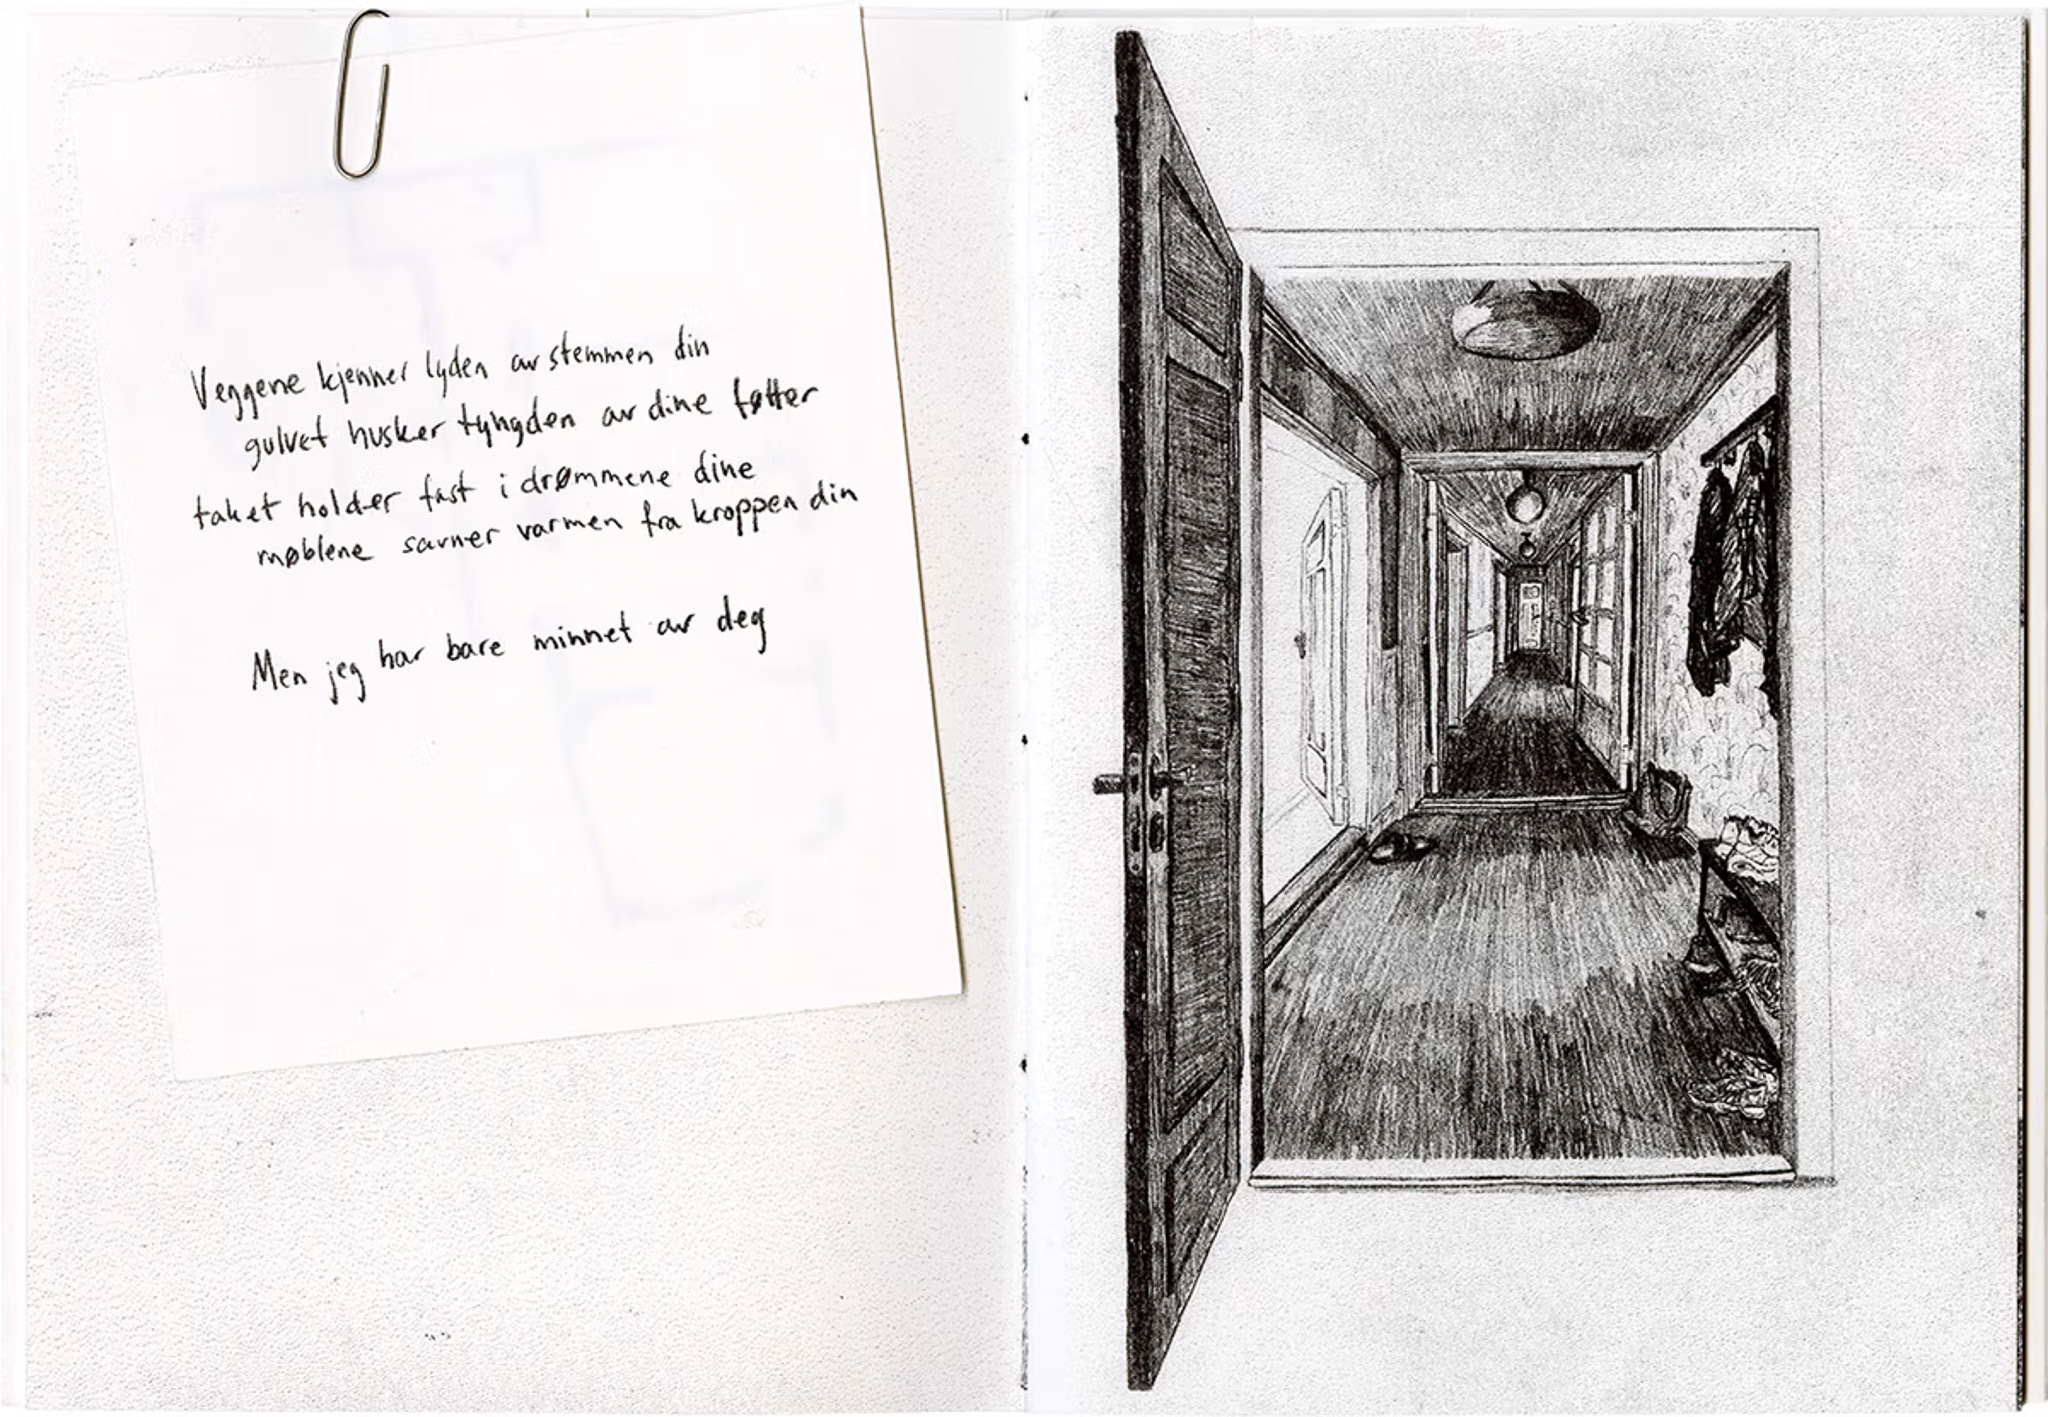 Veggene kjenner lyden av stemmen din
gulvet husker tyngden av dine føtter
taket holder fast i drømmene dine
møblene savner varmen fra kroppen din
Men jeg har bare minnet av deg